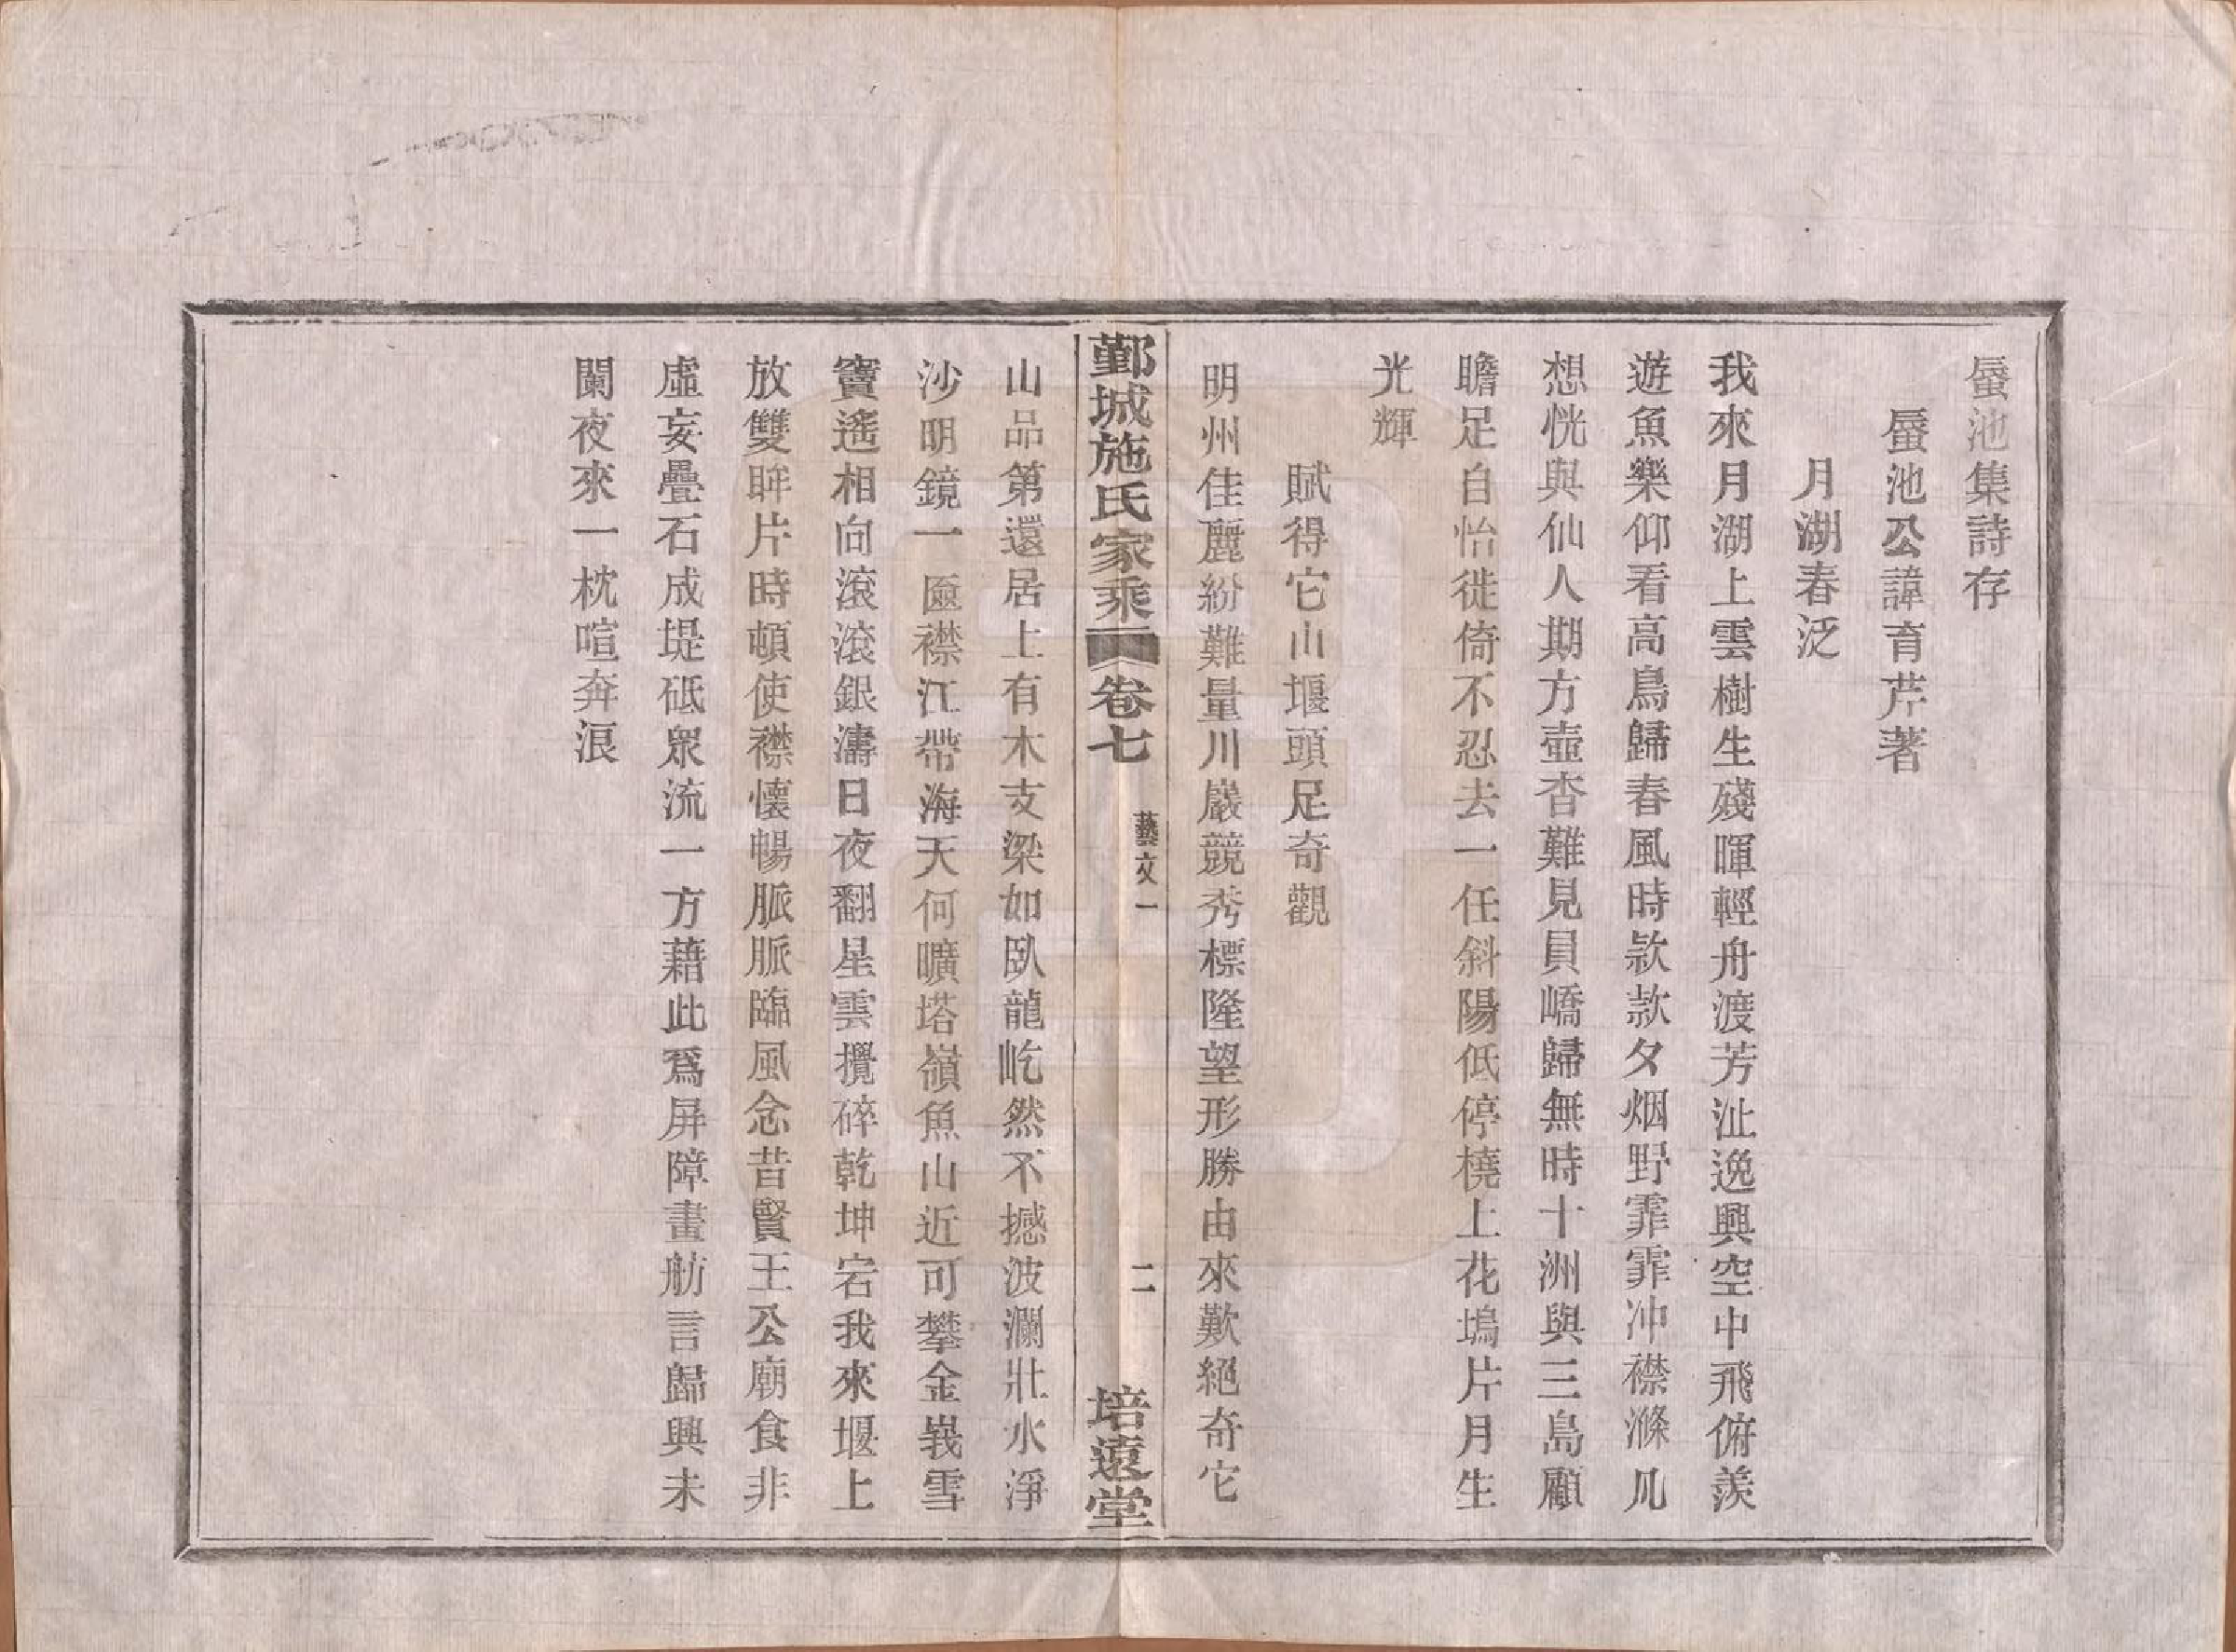 蜃池集詩存
蜃池公諱育芹著
月湖春泛
我來月湖上雲樹生殘暉輕舟渡芳沚逸興空中飛俯羨
遊魚樂仰看高鳥歸春風時款款夕烟野霏霏冲襟滌凡
想恍與仙人期方壺杳難見員嶠歸無時十洲與三島顧
瞻足自怡徙倚不忍去一任斜陽低停橈上花塢片月生
光輝
賦得它山堰頭足奇觀
明州佳麗紛難量川巖競秀標隆望形勝由來歎絕奇它
鄞城施氏家乘
卷七
藝文一
二
培遠堂
山品第還居上有木支梁如臥龍屹然不撼波瀾壯水淨
沙明鏡一匳襟江帶海天何曠塔嶺魚山近可攀金峩雪
竇遙相向滾滾銀濤日夜翻星雲攪碎乾坤宕我來堰上
放雙眸片時頓使襟懷暢脈脈臨風念昔賢王公廟食非
虛妄疊石成堤砥衆流一方藉此爲屏障畫舫言歸興未
闌夜來一枕喧奔浪